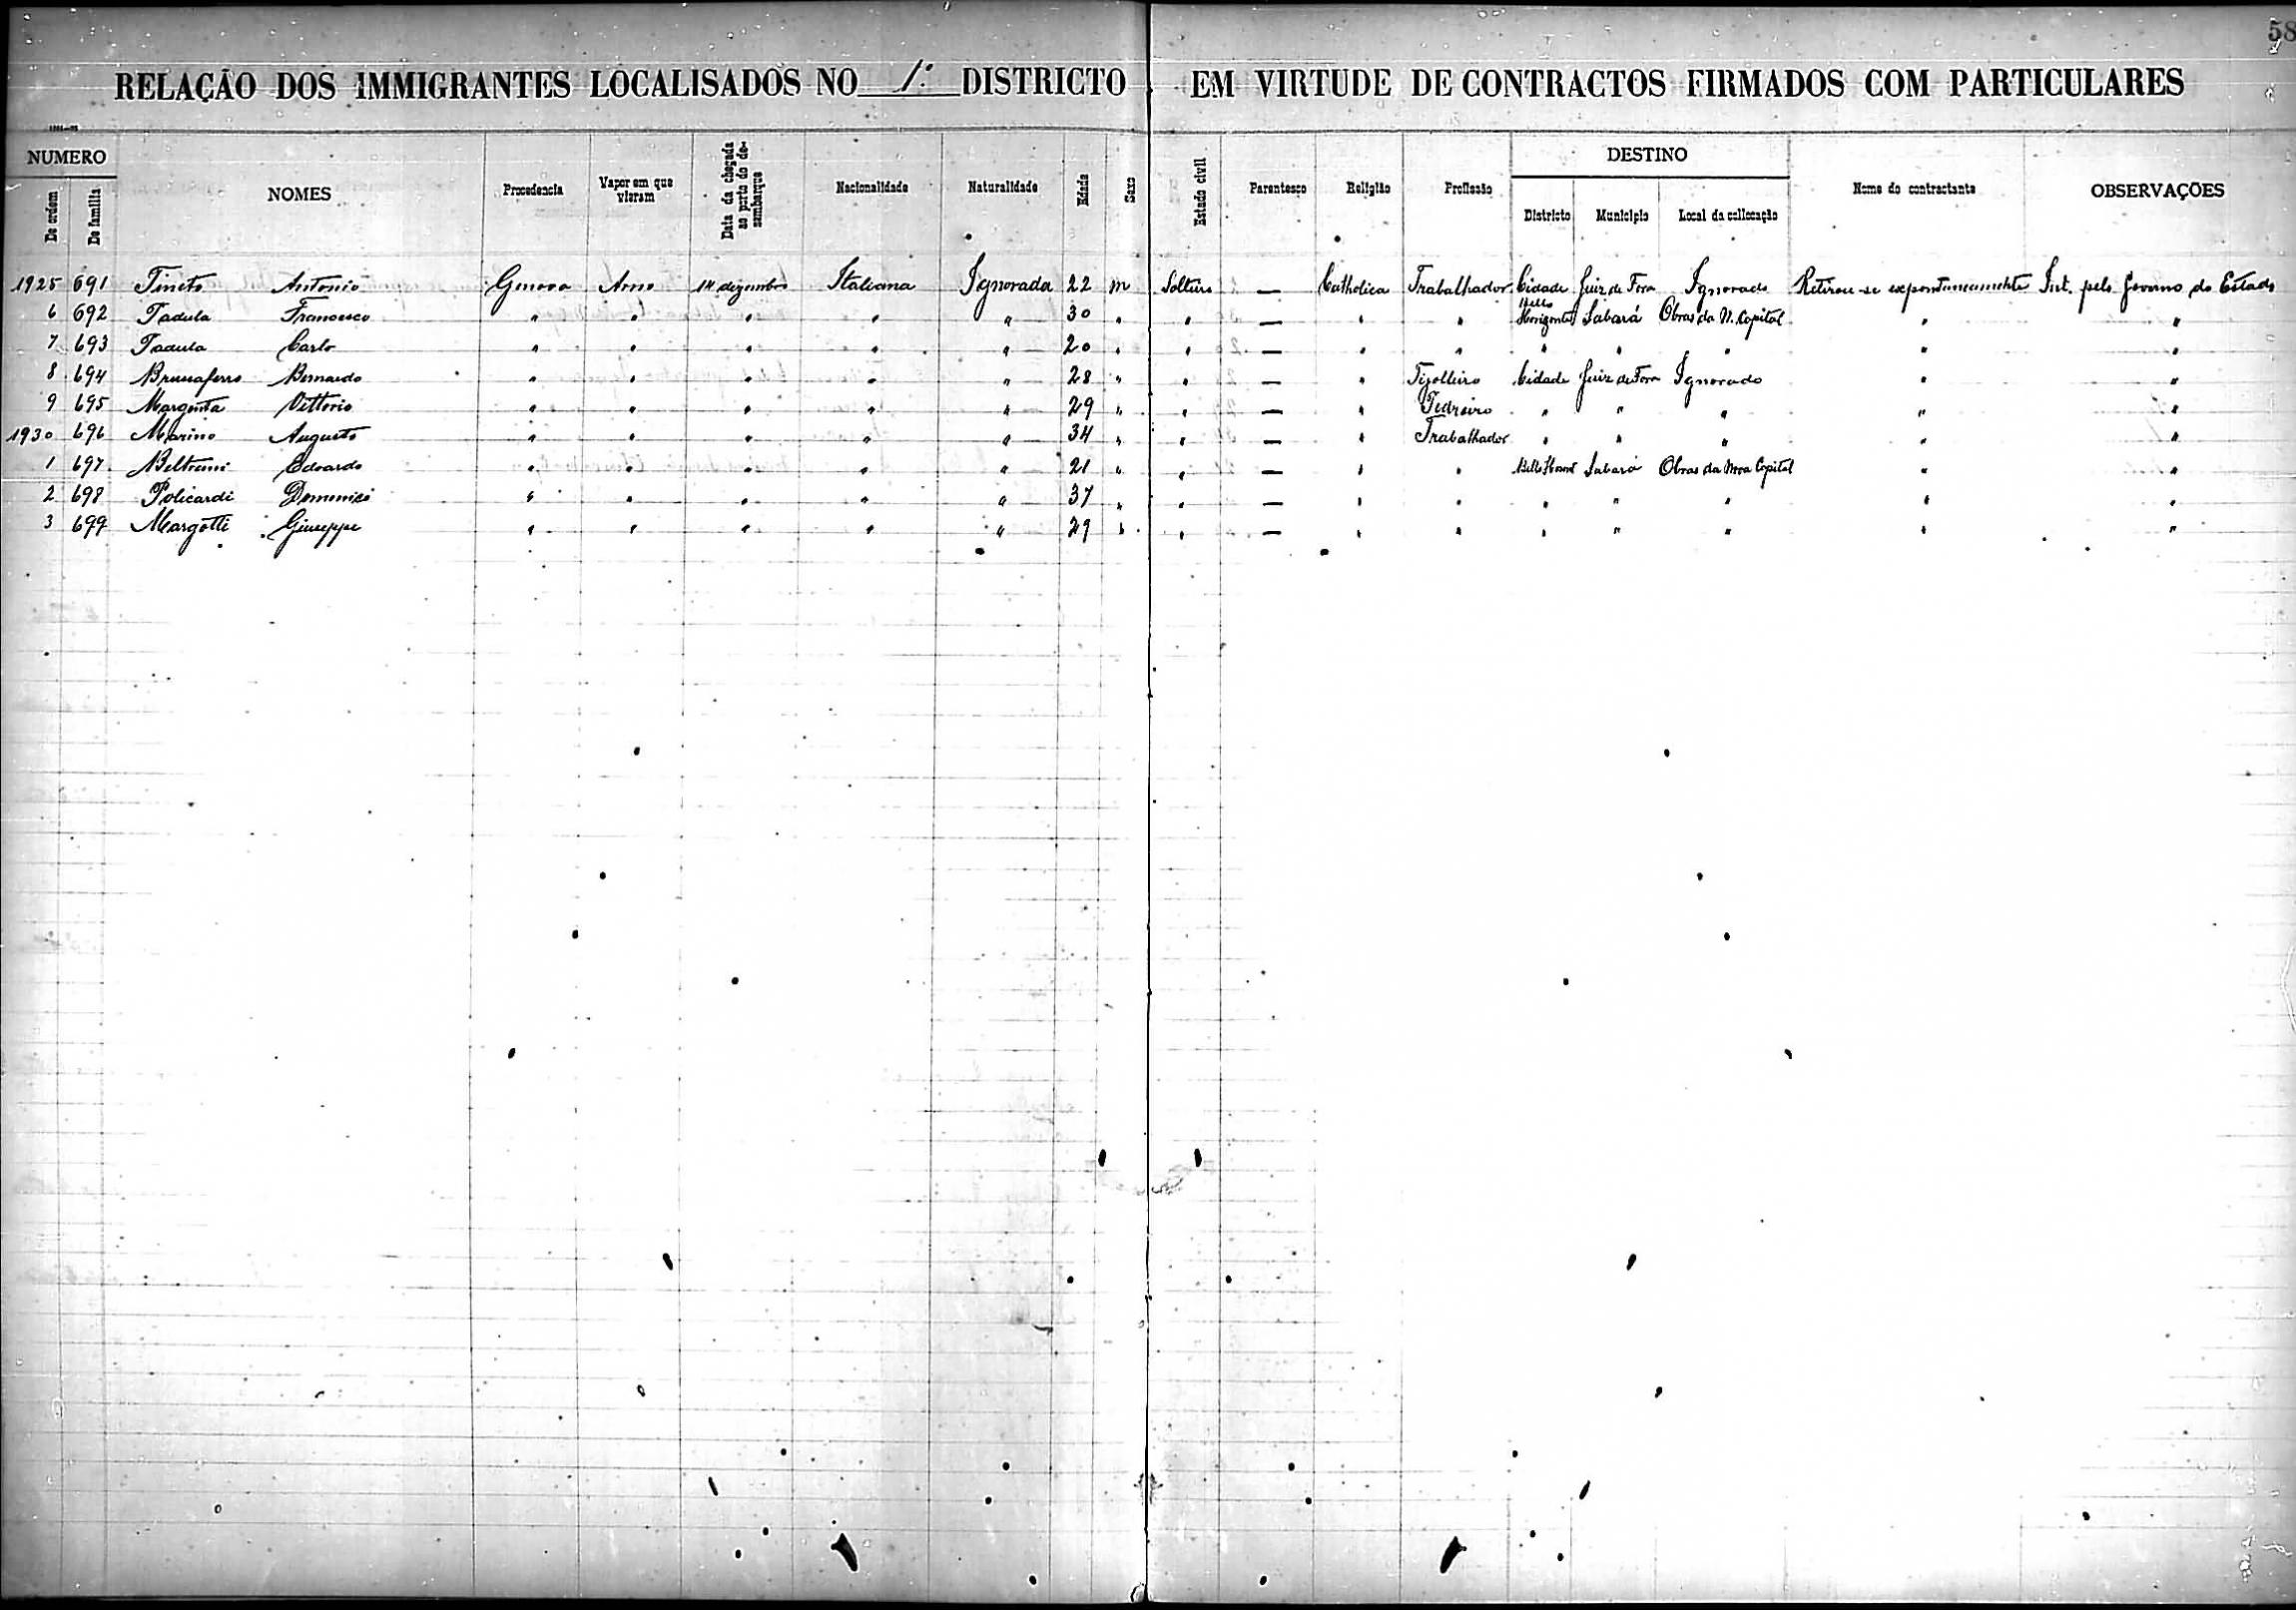 58
RELAÇÃO DOS IMMIGRANTES LOCALISADOS NO 1º DISTRICTO EM VIRTUDE DE CONTRACTOS FIRMADOS COM PARTICULARES
NUMERO
De ordem De familia NOMES Procedencia Vapor em que vieram Data da chegada ao porto do desembarque Nacionalidade Naturalidade Edade Sexo Estado civil Parentesco Religião Profissão DESTINO Districto Municipio Local da collocação Nome do contractante OBSERVAÇÕES
1925 691 Antonio Genova Arno 14 dezembro Italiana Ignorada 22 m Solteiro — Catholica Trabalhador Cidade Juiz de Fora Ignorado Retirou-se expontaneamente Int. pelo Governo do Estado
6 692 Tadula Francesco " " " " " 30 " " — " " Bello Horizonte Sabará Obras da N. Capital " "
7 693 Tadula Carlo " " " " " 20 " " — " " " " " " "
8 694 Brunaferro Bernardo " " " " " 28 " " — " Tijolleiro Cidade Juiz de Fora Ignorado " "
9 695 Vittorio " " " " " 29 " " — " Pedreiro " " " " "
1930 696 Marino Augusto " " " " " 34 " " — " Trabalhador " " " " "
1 697 Beltrami Edoardo " " " " " 21 " " — " " Bello Horiz Sabará Obras da Nova Capital " "
2 698 Policardi Domenico " " " " " 37 " " — " " " " " " "
3 699 Margotti Giuseppe " " " " " 29 " " — " " " " " " "